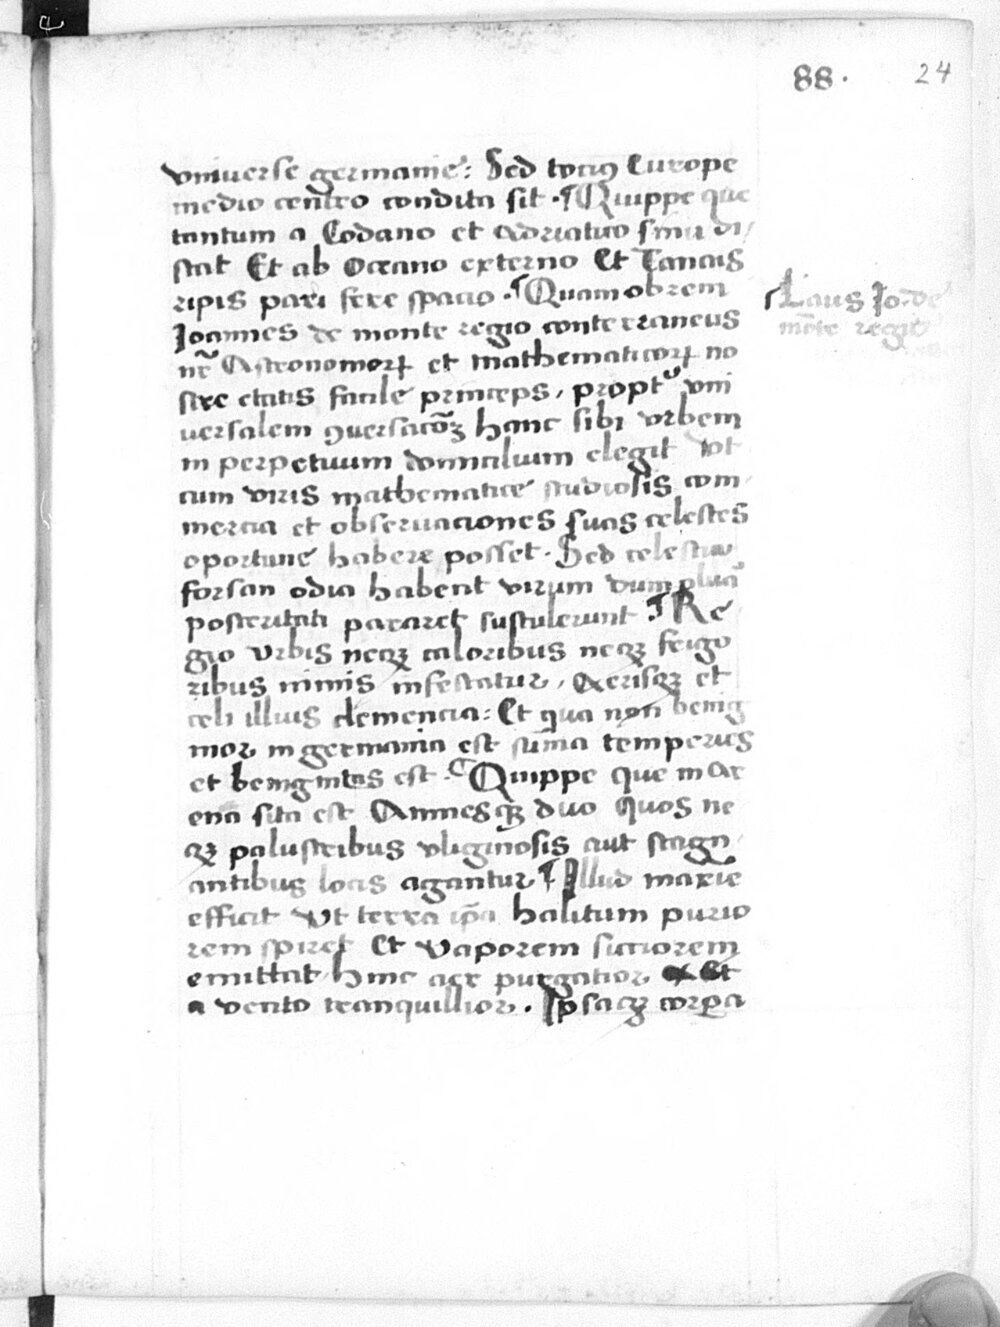 88. 24
vniuerse germanie: Sed tociꝰ Europe
medio centro condita sit. ¶ Quippe que
tantum a Codano et adriatico sinu di/
stat Et ab Oceano externo Et Tanais
ripis pari fere spacio. ¶ Quamobrem
Laus Jo. de
mōte regio
Joannes de monte regio conterraneus
nr̄ Astronomorꝝ et mathematicorꝝ no
stre etatis facile princeps, propt᷑ vni
uersalem ꝯuersacōꝫ hanc sibi vrbem
in perpetuum domicilium elegit Vt
cum viris mathematice studiosis com
mercia et obseruaciones suas celestes
oportune habere posset. Sed celestia
forsan odia habent virum dum plura
posteritati pararet sustulerunt. ¶ Re
gio vrbis neqꝫ caloribus neqꝫ frigo
ribus nimis infestatur, Aerisqꝫ et
celi illius clemencia: Et qua non benig
nior in germania est summa temperies
et benignitas est. ¶ Quippe que in ar
ena sita est Amnesqꝫ duo quos ne
qꝫ palustribus vliginosis aut stagn
antibus locis agantur ¶ Illud maxīe
efficit Vt terra ip̄a halitum purio
rem spiret Et vaporem sicciorem
emittat hinc aer purgatior Et
a vento tranquillior. Ipsaqꝫ corꝑa